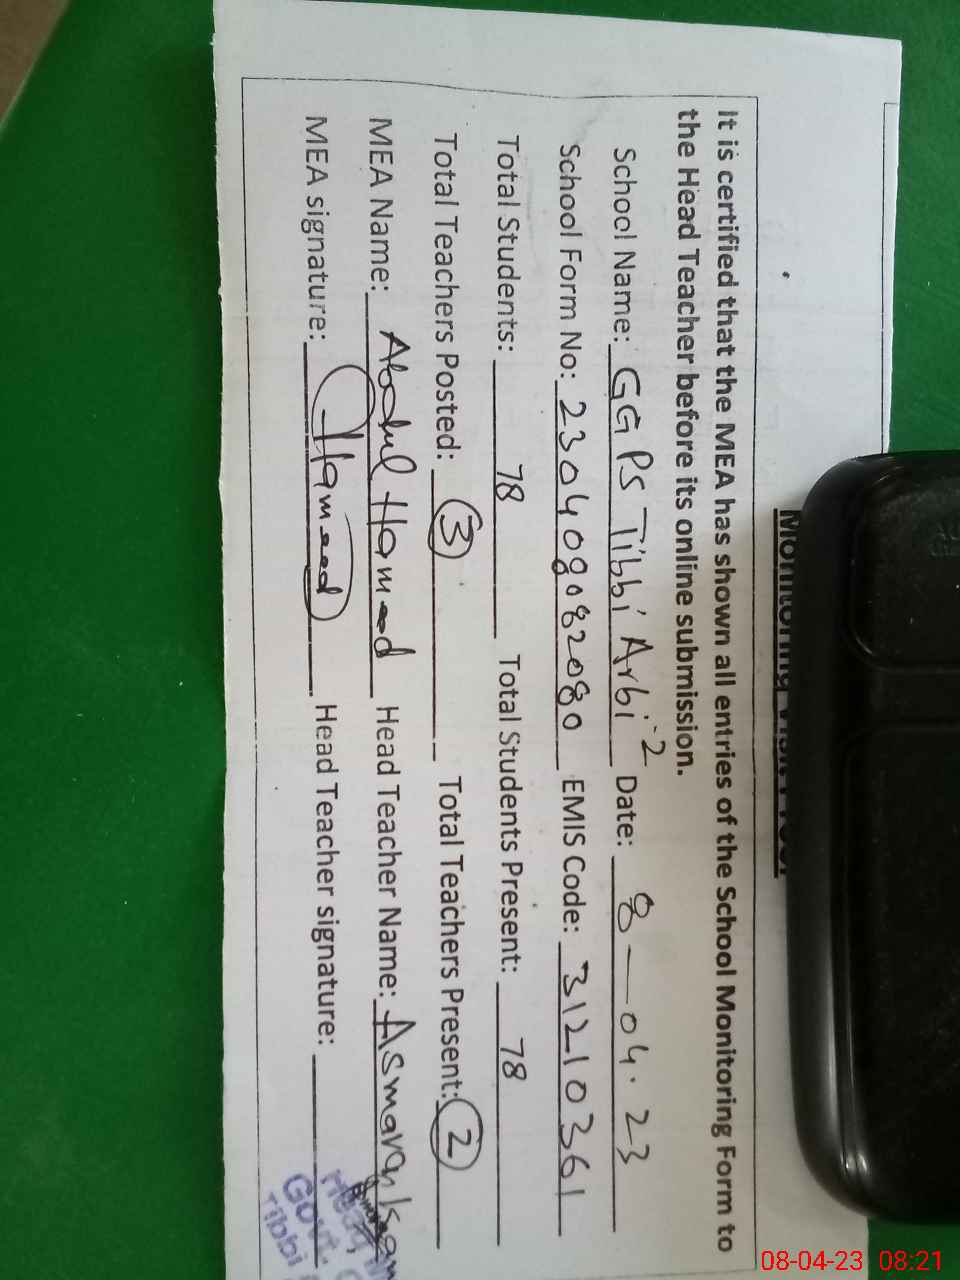 It is certified that the MEA has shown all entries of the School Monitoring Form to
the Head Teacher before its online submission.
School Name: GGPS Tibbi Arbi-2 Date: 8-04.23
School Form No: 230408082080 EMIS Code: 31210361
Total Students: 78 Total Students Present: 78
Total Teachers Posted: 3 Total Teachers Present: 2
MEA Name: Abdul Hameed Head Teacher Name:
MEA signature: Hameed Head Teacher signature:
Govt.
Tibbi
08-04-23 08:21